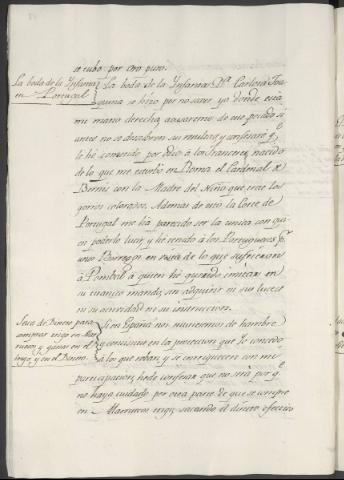 se cubo por oro puro.
La boda de la Ynfanta
en Portugal.
La boda de la Ynfanta Dª Carlota Joa-
quina se hizo por no saver ya donde está
mi mano derecha, acusareme de este pecado si
antes no se descubren sus resultas, y confesaré qe
le he cometido por odio á los Franceses, nacido
de lo que me estorbo en Roma el Cardenal de
Bernis con la Madre del Niño que trae los
gorros colorados. Ademas de esto la Corte de
Portugal me ha parecido ser la unica con qui-
en poderlo lucir, y he tenido á los Portugueses pr
unos Borregos en vista de lo que sufrieron
á Pombal á quien he querido imitar en
su tiranico mando, sin adquirir ni sus luces
ni su actividad ni su instruccion.
Saca de Dinero para
comprar trigo en Mar-
ruecos y ganar en el
trigo, y en el Dinero.
Si en España nos murieremos de hambre
y consiste en la proteccion que he concedido
á los que roban, y se enriquecen con mi
participacion, hede confesar que no será por qe
no haya cuidado por otra parte de que se compre
en Marruecos trigo, sacando el dinero efectivo